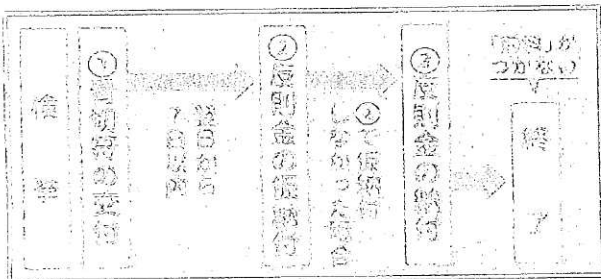 ①青切符の交付
翌日から
7日以内
②反則金の仮納付
②で仮納付
しなかった場合
③反則金の納付
「前科」が
つかない
終了